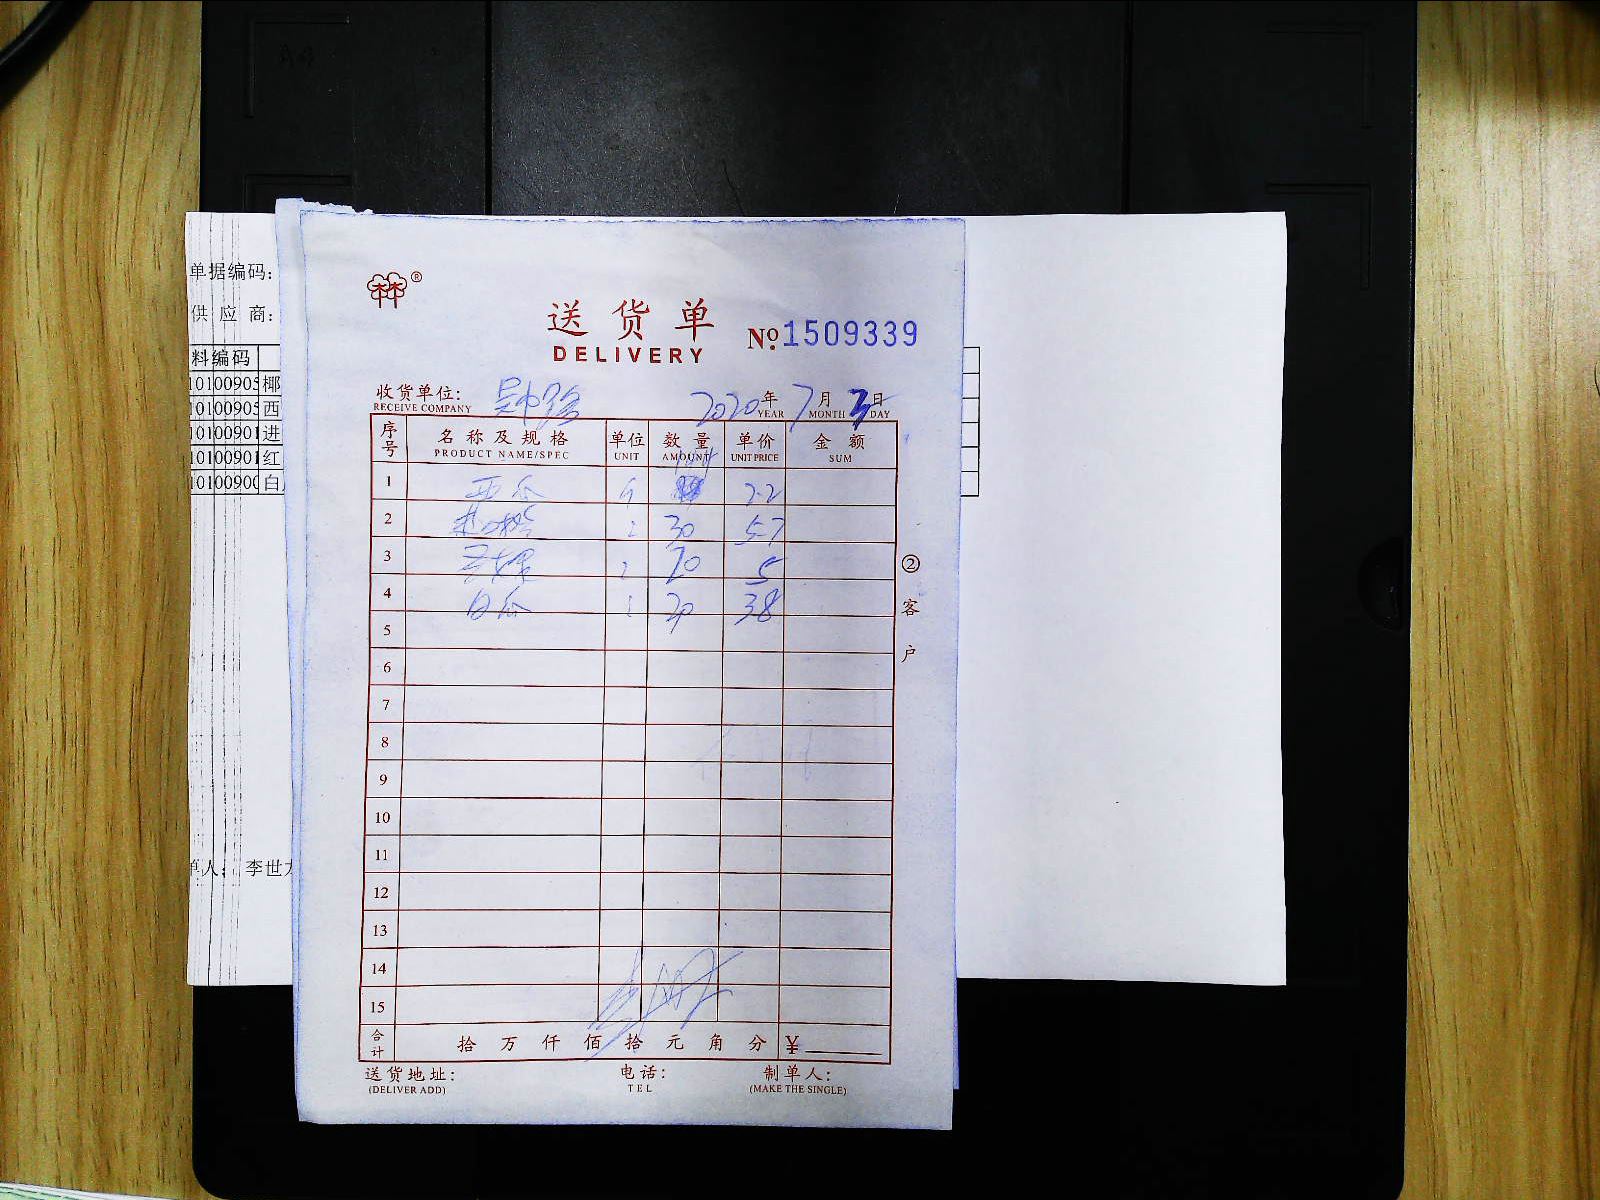 单据编码:
供 应 商:
料编码
10100905 椰
10100905 西
10100901 进
10100901 红
1010090 白
单人: 李世
®
送货单
DELIVERY
№ 1509339
收货单位: 2020年7月3日
RECEIVE COMPANY YEAR MONTH DAY
序号 名称及规格 单位 数量 单价 金额
PRODUCT NAME/SPEC UNIT AMOUNT UNIT PRICE SUM
1 西瓜 2.2
2 30 5.7
3 20 5
4 白瓜 20 3.8
5
6
7
8
9
10
11
12
13
14
15
合计 拾 万 仟 佰 拾 元 角 分 ¥
②客户
送货地址: 电话: 制单人:
(DELIVER ADD) TEL (MAKE THE SINGLE)